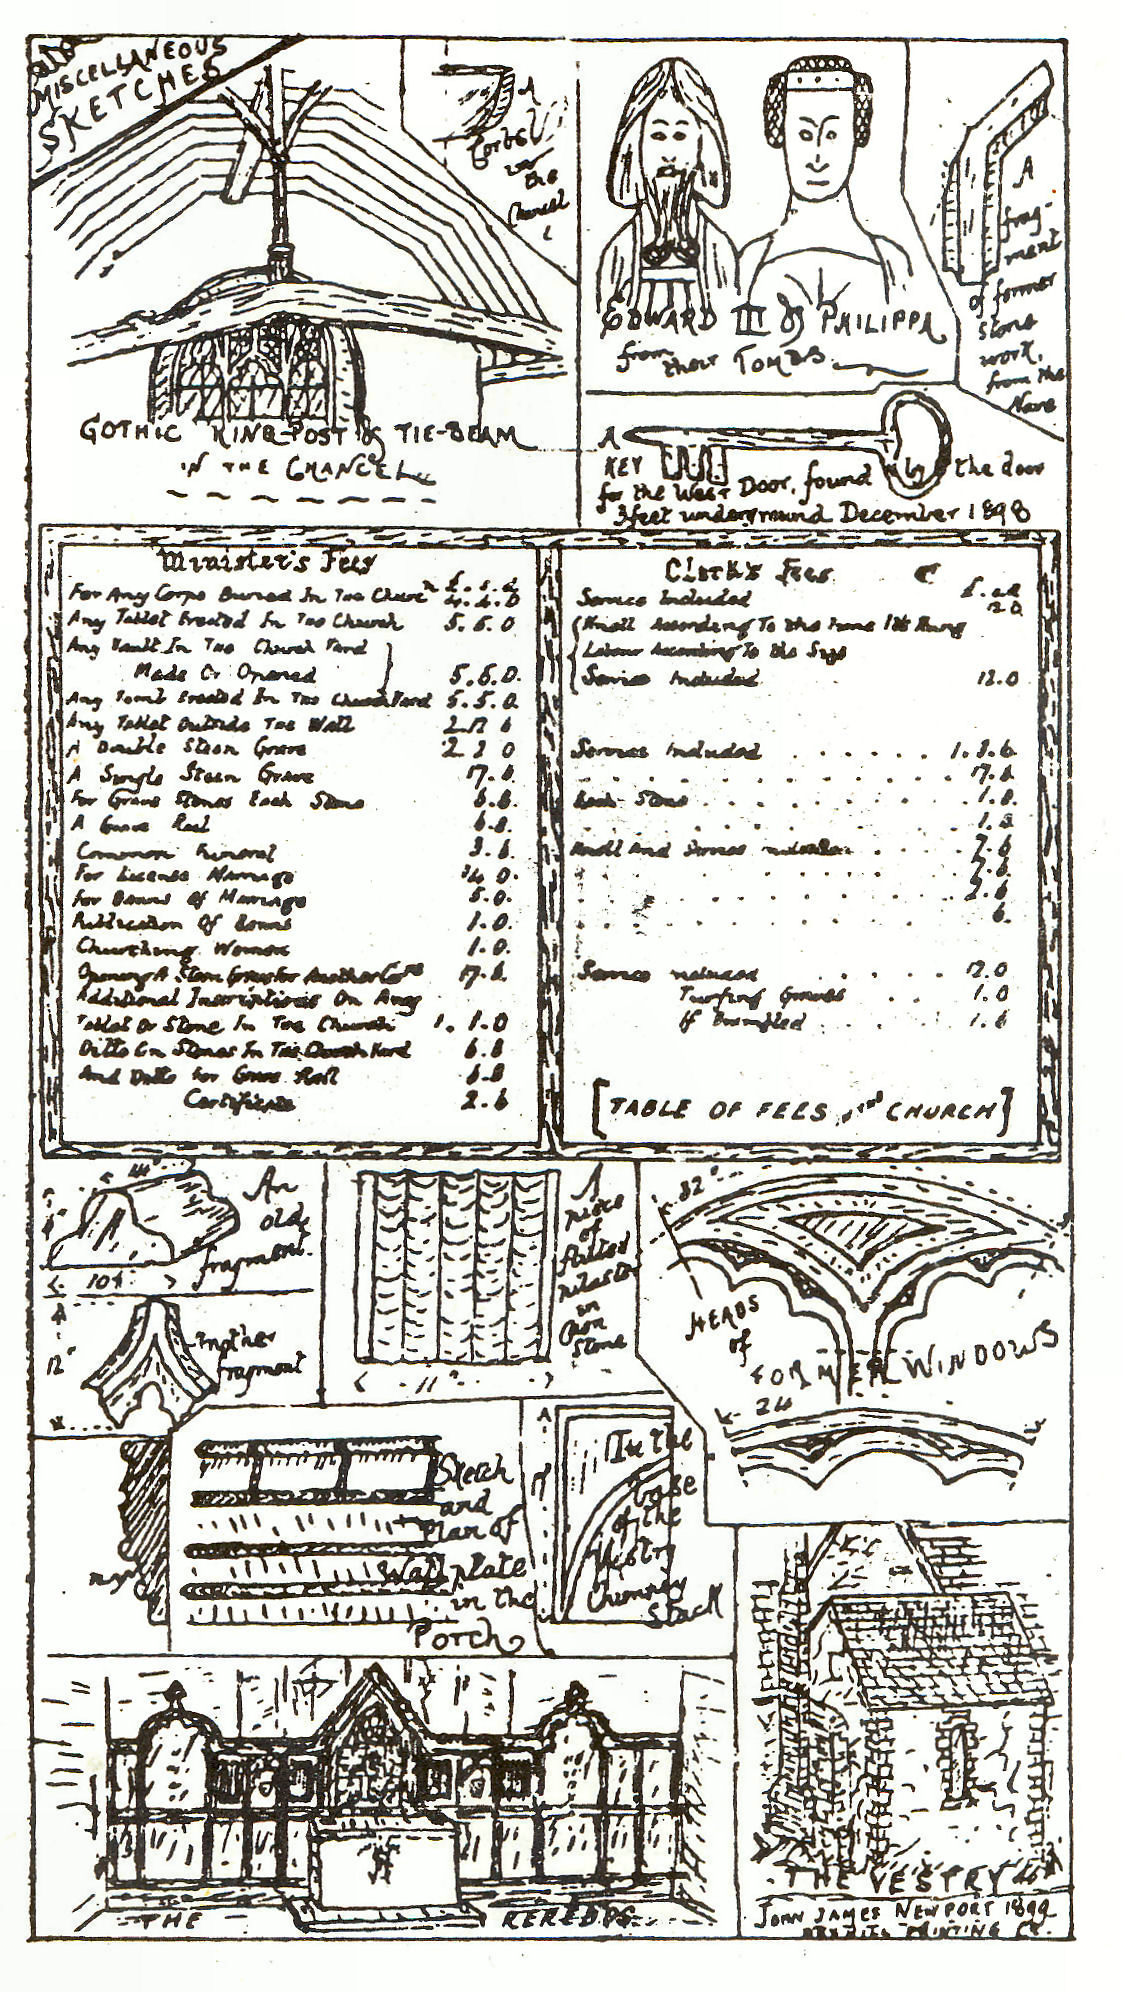 MISCELLANEOUS
SKETCHES
A
Corbel
in
the
Chancel
EDWARD III & PHILIPPA
from their TOMBS
A
frag-
ment
of former
stone
work,
from the
Nave
GOTHIC KING-POST & TIE-BEAM
IN THE CHANCEL
A
KEY
for the West Door, found by the door
3 feet underground December 1898
Minister's Fees
£. s. d
For Any Corps Burried In The Church 4. 4. 0
Any Tablet Erected In The Church 5. 5. 0
Any Vault In The Church Yard
Made Or Opened 5. 5. 0.
Any Tomb Erected In The Church Yard 5. 5. 0.
Any Tablet Outside The Wall 2. 12 6
A Double Steen Grave 2 2 0
A Single Steen Grave 17. 6.
For Grave Stones Each Stone 6. 8.
A Grave Rail 6. 8.
Common Funeral 3. 6.
For License Marriage 0.
For Banns Of Marriage 5. 0.
Publication Of Banns 1. 0.
Churching Women 1. 0.
Opening A Steen Grave For Another 17. 6.
Additional Inscriptions On Any
Tablet Or Stone In The Church 1. 1. 0
Ditto On Stones In The Church Yard 6. 8
And Ditto For Grave Rail 6. 8
Certificate 2. 6
Clerk's Fees
Service Included
Knell According To the Time It's Rung
Labour According To the Size
Service Included 12. 0
Service Included 1. 1. 6.
17. 6
Each Stone 1. 0.
1. 0
Knell And Service included 7. 6
7. 6.
2. 6
6.
Service included 12. 0
Turfing Graves 1. 0
If Brambled 1. 6
[TABLE OF FEES IN THE CHURCH]
An
old
fragment.
10½"
Another
fragment
12"
A
piece
of
fluted
pilaster
in
stone
11"
32"
HEADS
of
FORMER WINDOWS
24
Sketch
and
plan of
Wall plate
in the
PORCH
In the
base
of the
Vestry
Chimney
Stack
THE REREDOS
THE VESTRY
JOHN JAMES NEWPORT 1899
PRINTING Co.